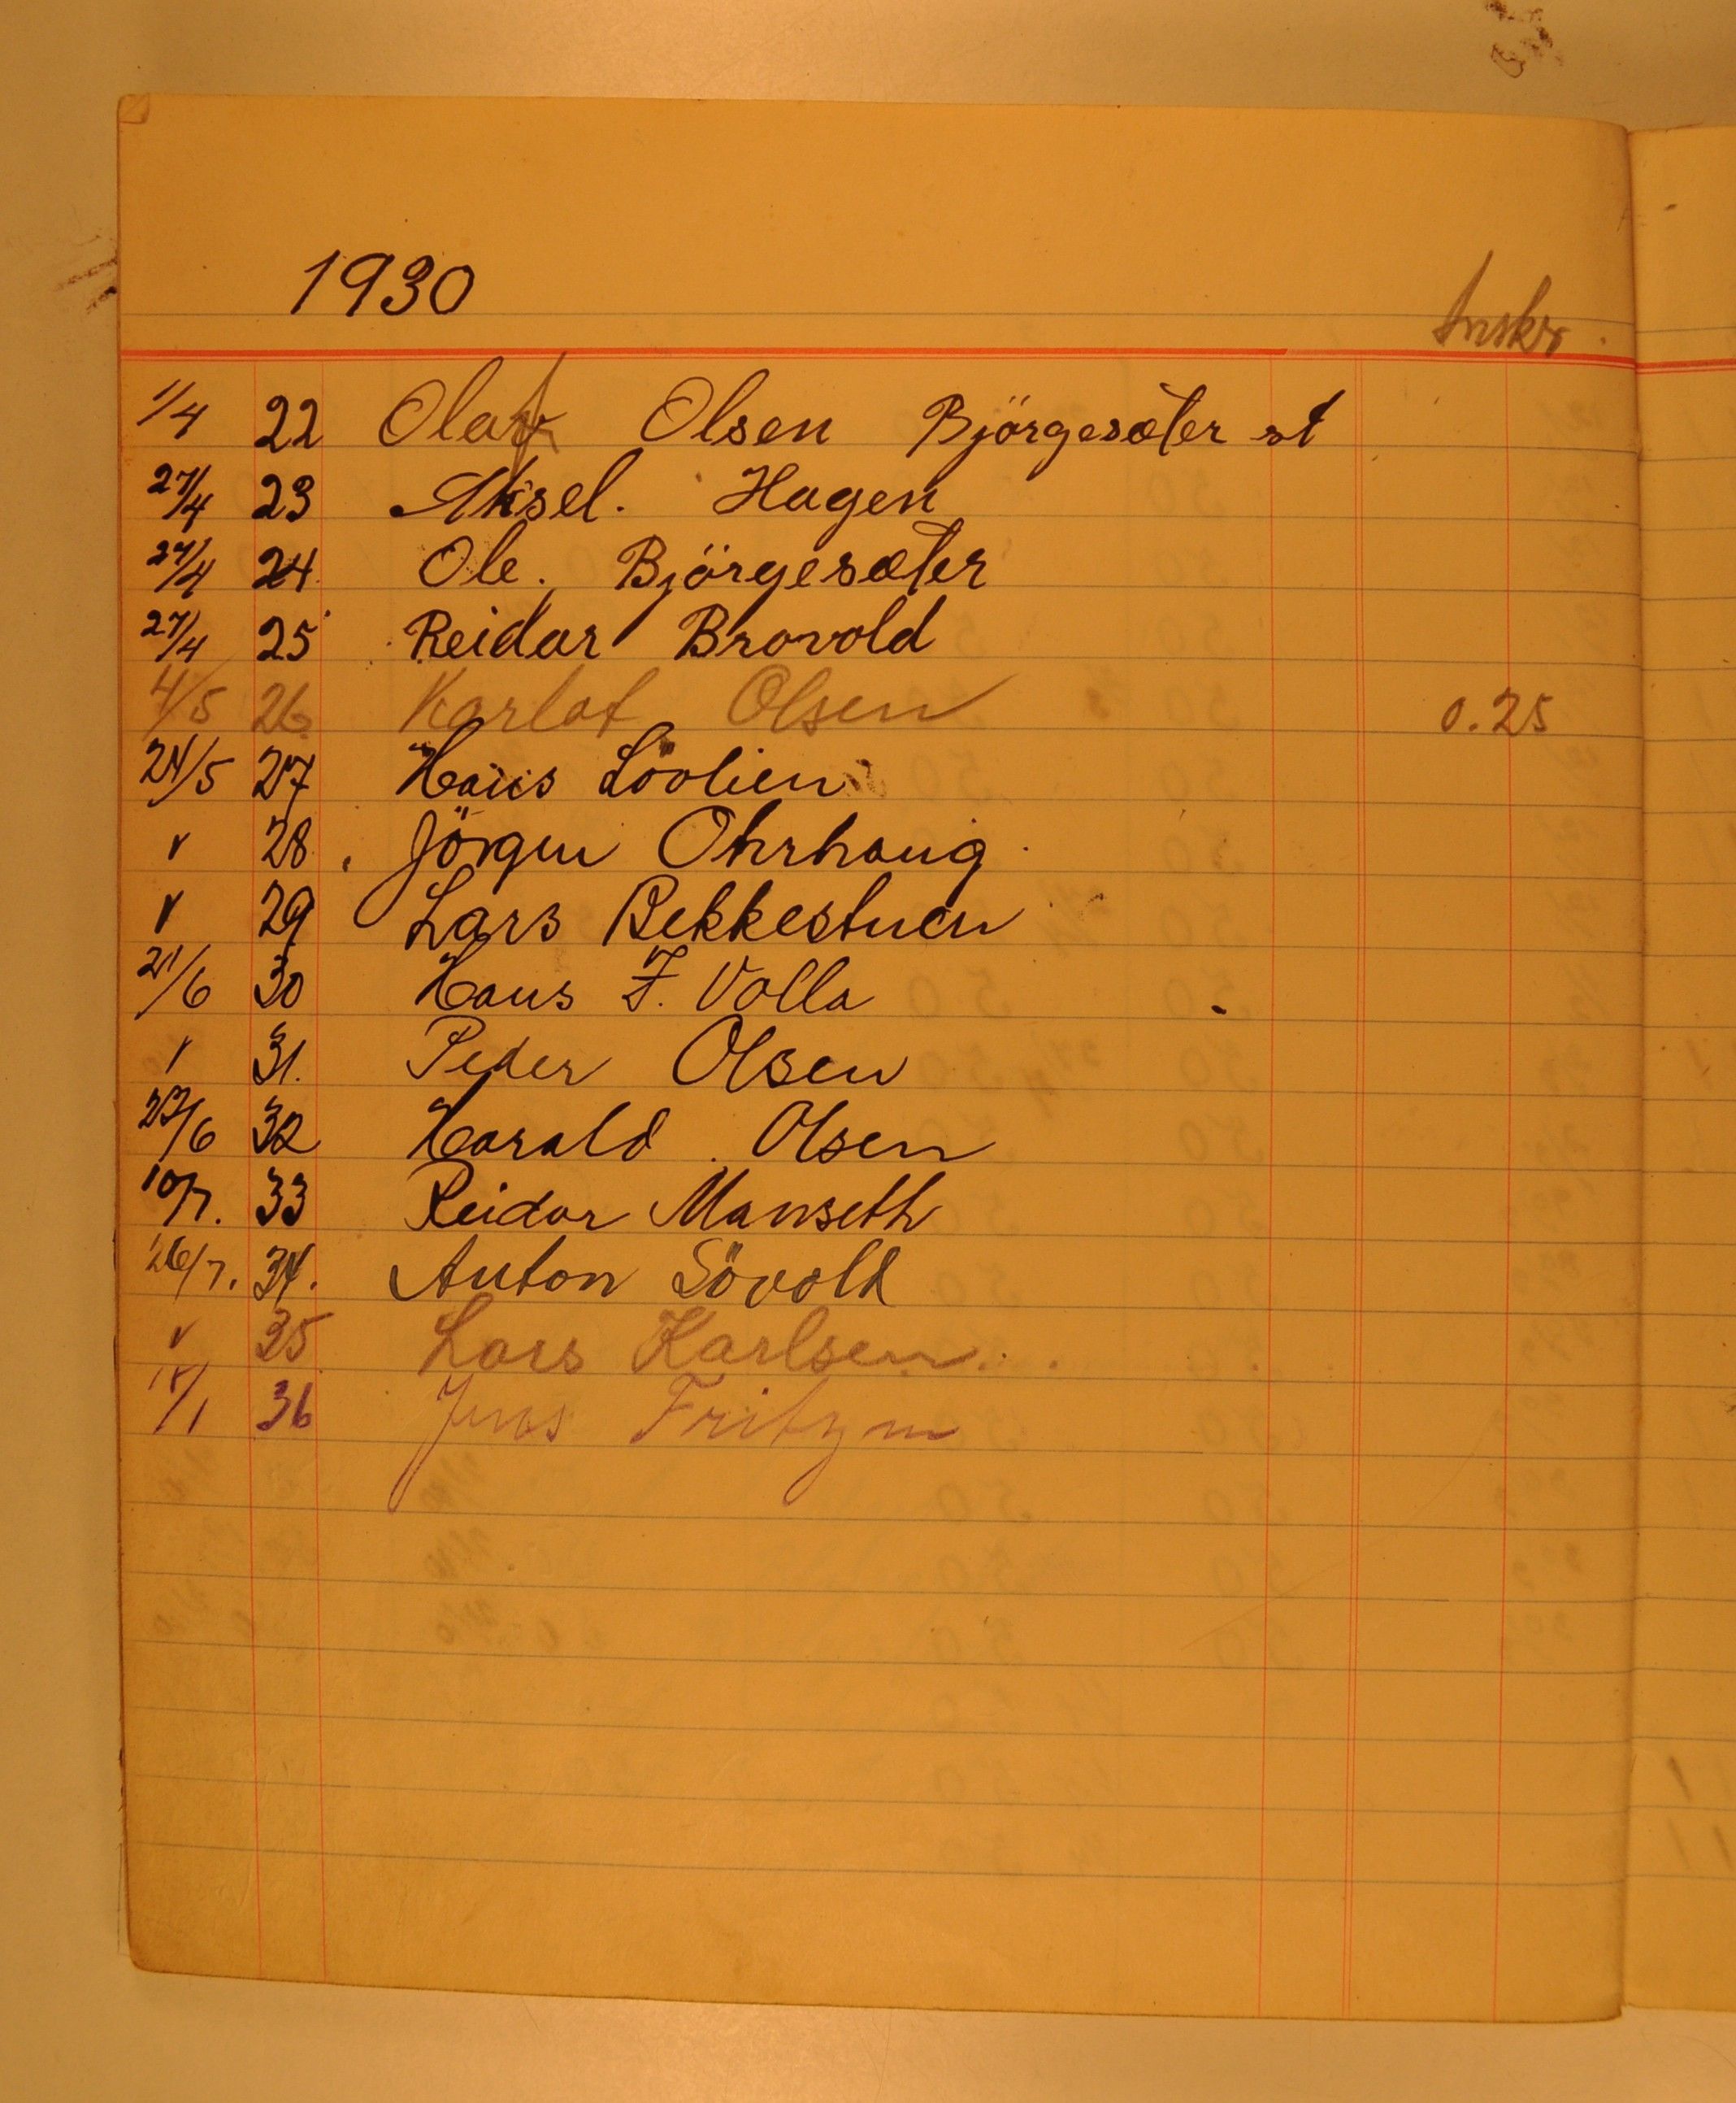 1930
Inskr.
1/4 22 Olaf Olsen Björgesæter st
27/4 23 Aksel. Hagen
27/4 24 Ole. Björgesæter
27/4 25 Reidar Brovold
4/5 26. Karlot Olsen 0.25
24/5 27 Hans Löolien
" 28. Jörgen Ohrhaug
" 29 Lars Bekkestuen
21/6 30 Hans F. Volla
" 31. Peder Olsen
22/6 32 Harald Olsen
10/7. 33 Reidar Manseth
26/7. 34. Anton Sövold
" 35 Lars Karlsen
18/1 36 Jens Fritzen